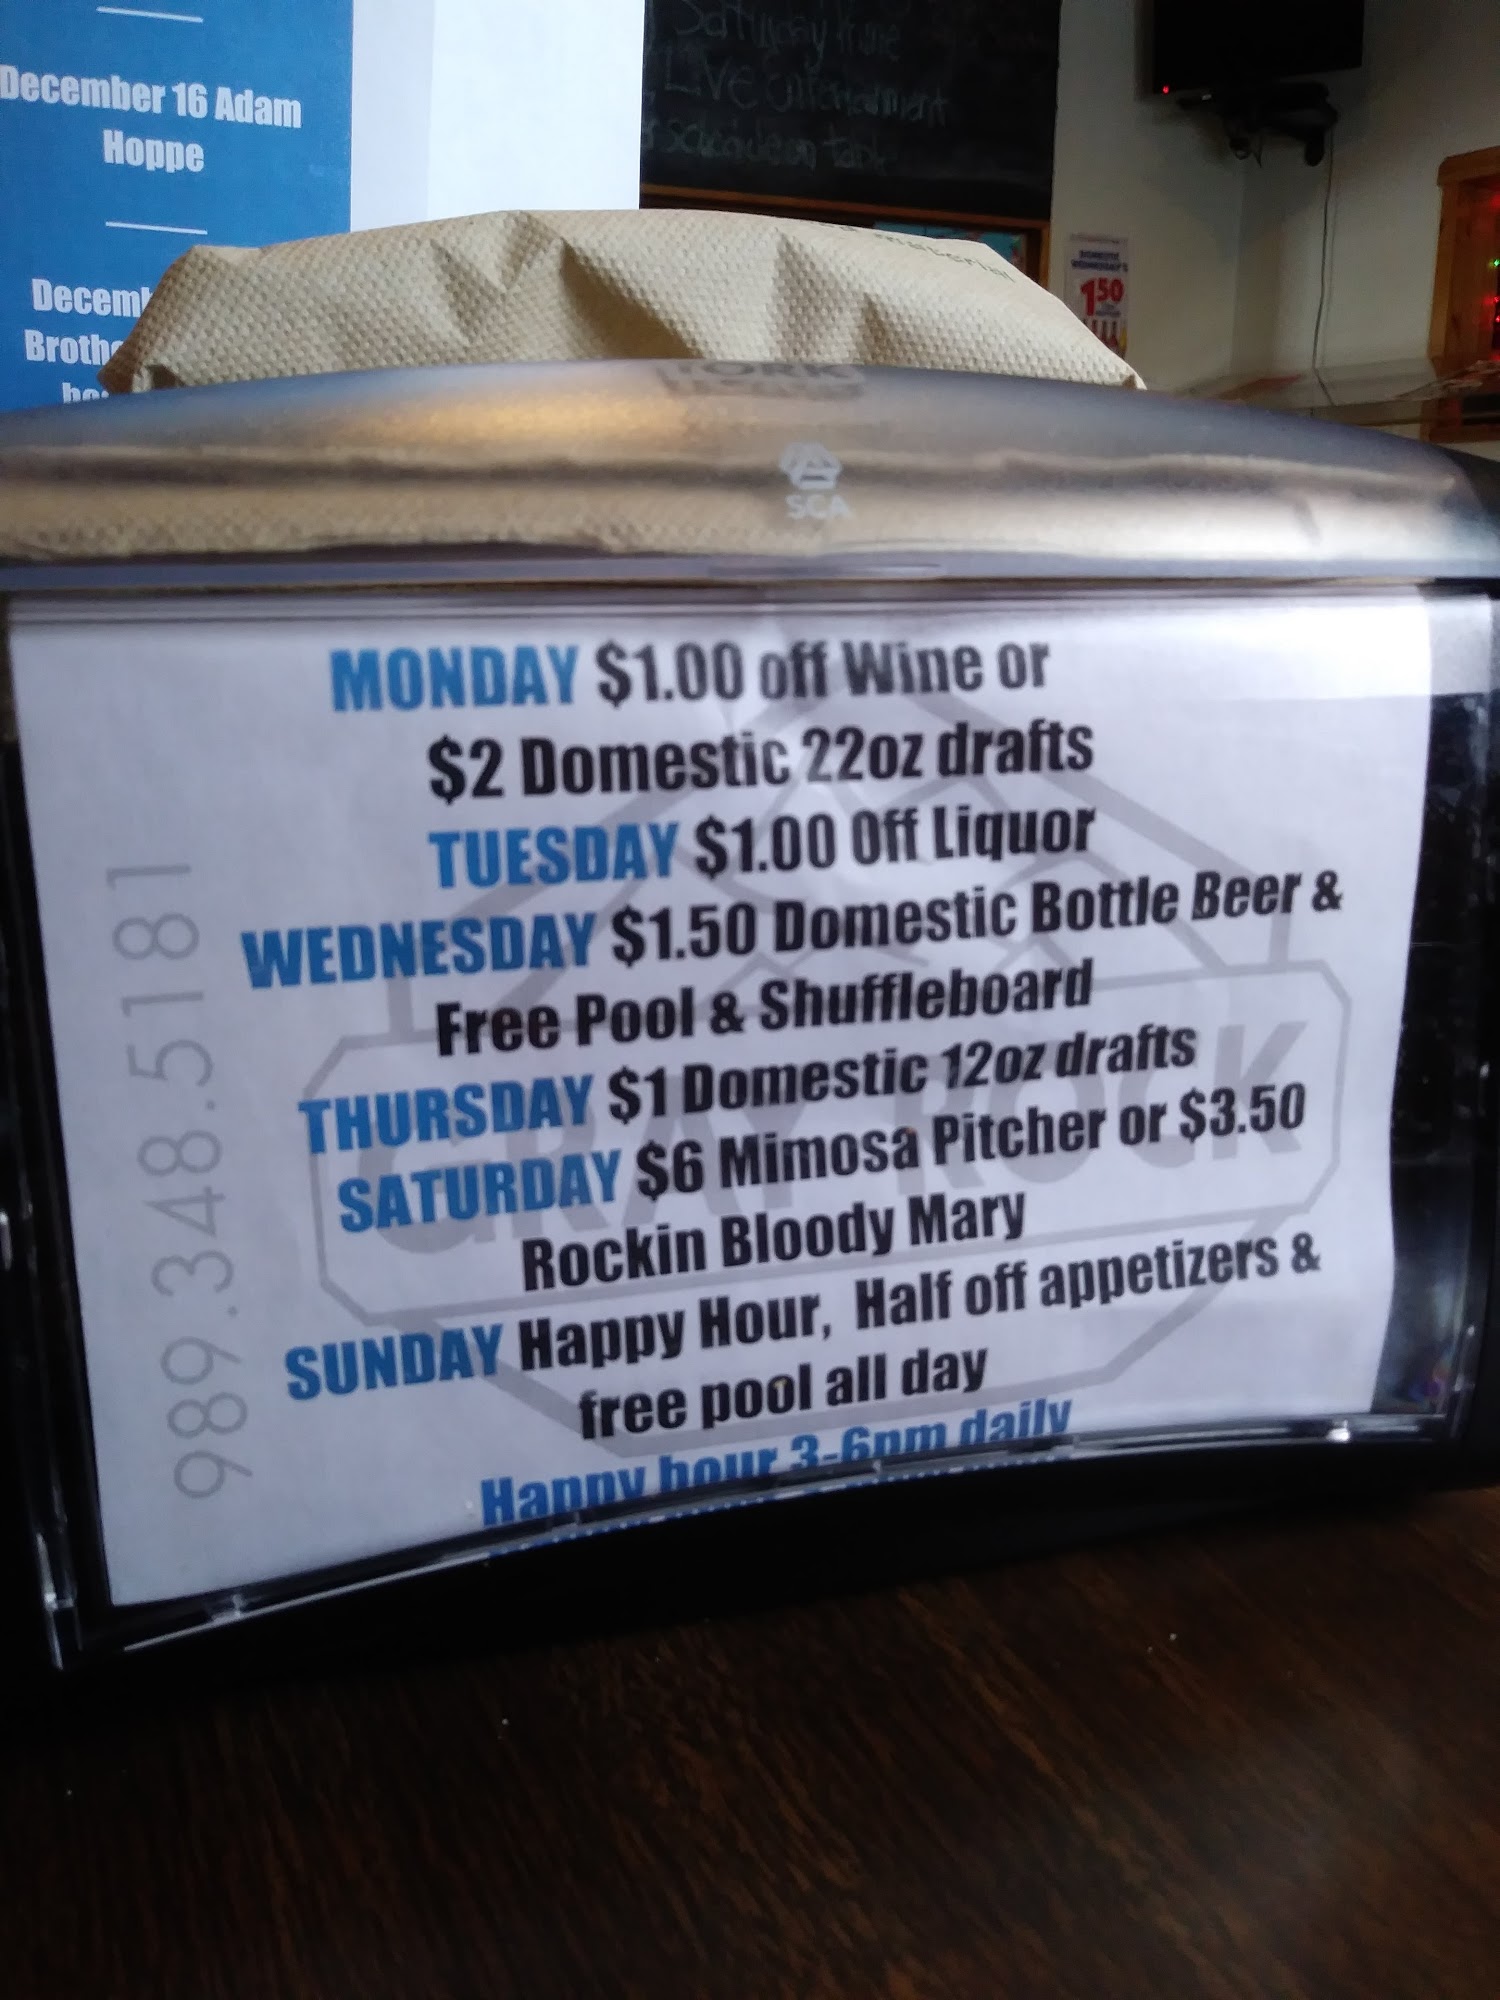 December 16 Adam
Hoppe
Decemb
Brothe
Saturday
Live entertainment
schedule on table
DOMESTIC
WEDNESDAY'S
1.50
material
TORK
SCA
MONDAY $1.00 off Wine or
$2 Domestic 22oz drafts
TUESDAY $1.00 Off Liquor
WEDNESDAY $1.50 Domestic Bottle Beer &
Free Pool & Shuffleboard
THURSDAY $1 Domestic 12oz drafts
SATURDAY $6 Mimosa Pitcher or $3.50
Rockin Bloody Mary
SUNDAY Happy Hour, Half off appetizers &
free pool all day
Happy hour 3-6pm daily
989.348.5181
GRAY ROCK